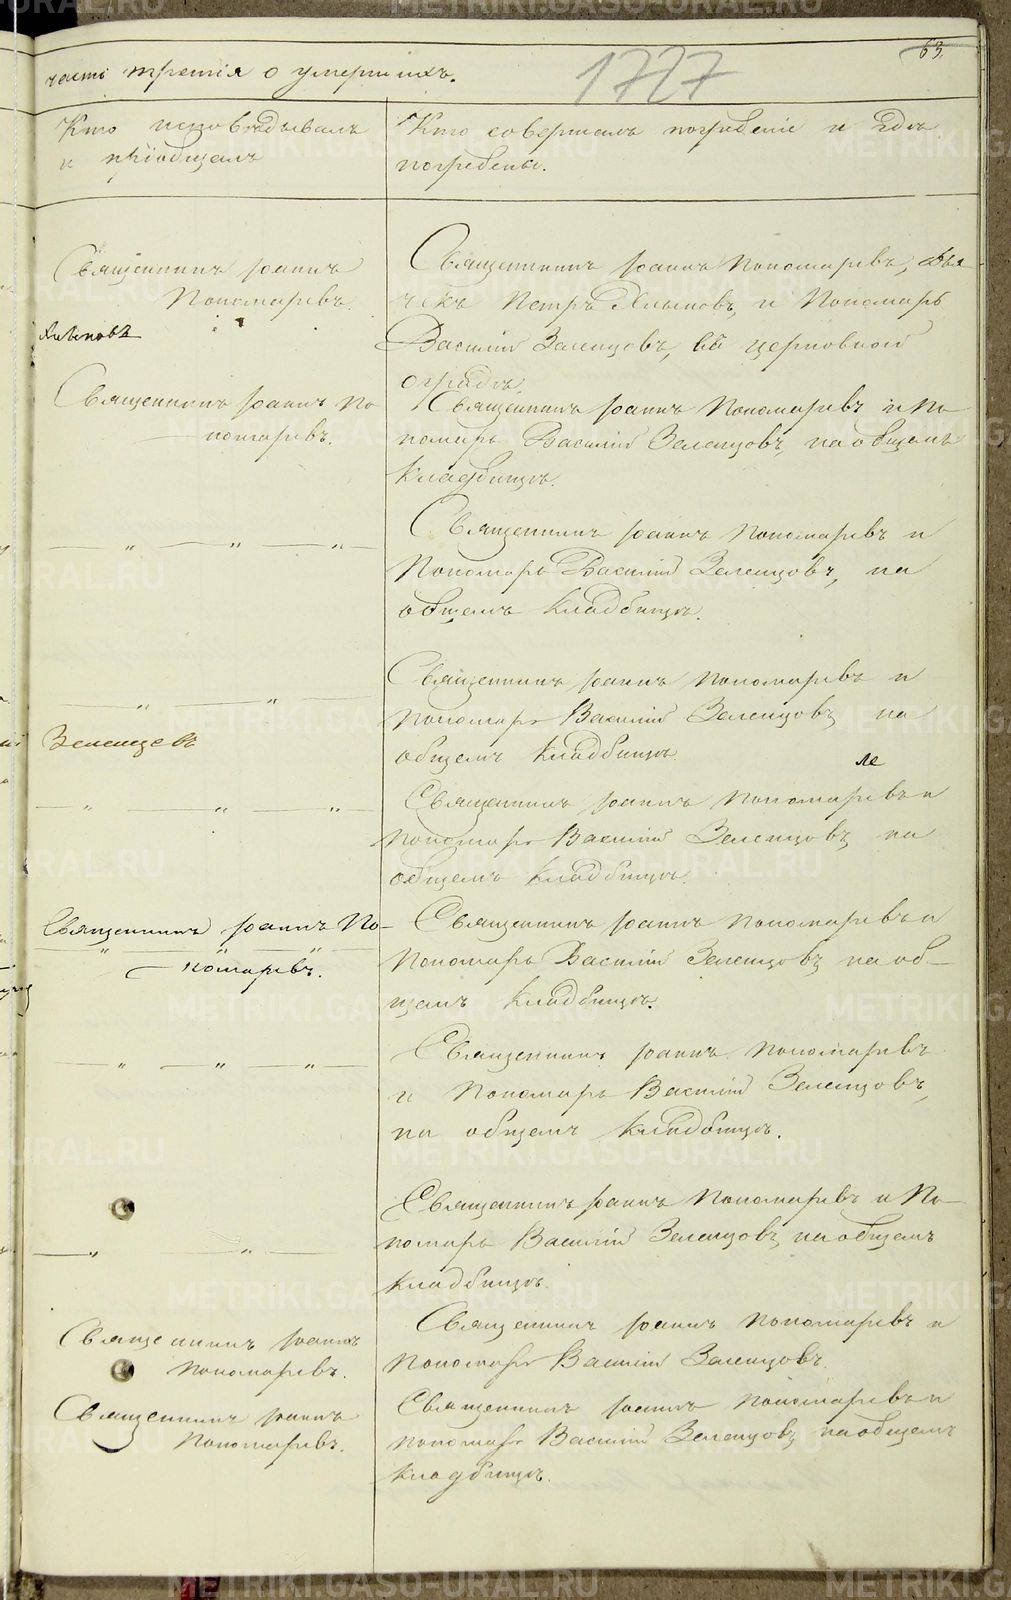 63.
1727
часть третія о умершихъ.
Кто исповѣдывалъ
и пріобщалъ
Кто совершалъ погребеніе и гдѣ
погребены.
Священникъ Іоаннъ
Пономаревъ.
Священникъ Іоаннъ Пономаревъ, Дья-
чекъ Петръ Ялыповъ и Пономарь
Василій Зеленцовъ, въ церковной
оградѣ.
Священникъ Іоаннъ По
номаревъ.
Священникъ Іоаннъ Пономаревъ и По
номарь Василій Зеленцовъ, на общемъ
кладбищѣ.
— „ — „ — „ —
Священникъ Іоаннъ Пономаревъ и
Пономарь Василій Зеленцовъ, на
общемъ кладбищѣ.
— „ — „ —
Священникъ Іоаннъ Пономаревъ и
Пономарь Василій Зеленцовъ, на
общемъ кладбищѣ.
Зеленцевъ
ле
— „ — „ — „ —
Священникъ Іоаннъ Пономаревъ и
Пономарь Василій Зеленцовъ, на
общемъ кладбищѣ.
Священникъ Іоаннъ По-
номаревъ.
Священникъ Іоаннъ Пономаревъ и
Пономарь Василій Зеленцовъ, на об-
щемъ кладбищѣ.
— „ — „ — „ —
Священникъ Іоаннъ Пономаревъ
и Пономарь Василій Зеленцовъ,
на общемъ кладбищѣ.
— „ — „ —
Священникъ Іоаннъ Пономаревъ и По-
номарь Василій Зеленцовъ, на общемъ
кладбищѣ.
Священникъ Іоаннъ
Пономаревъ.
Священникъ Іоаннъ Пономаревъ и
Пономарь Василій Зеленцовъ.
Священникъ Іоаннъ
Пономаревъ.
Священникъ Іоаннъ Пономаревъ и
Пономарь Василій Зеленцовъ, на общемъ
кладбищѣ.
METRIKI.GASO-URAL.RU